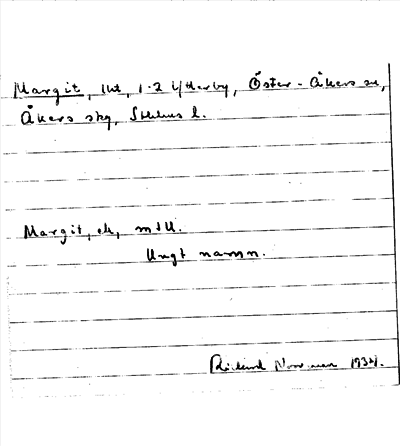 Margit, lht, 1-2 Ytterby, Öster-Åkers sn,
Åkers skg, Sthlms l.
Margit, ck, mdU.
Ungt namn.
Rickard Norrman 1934.